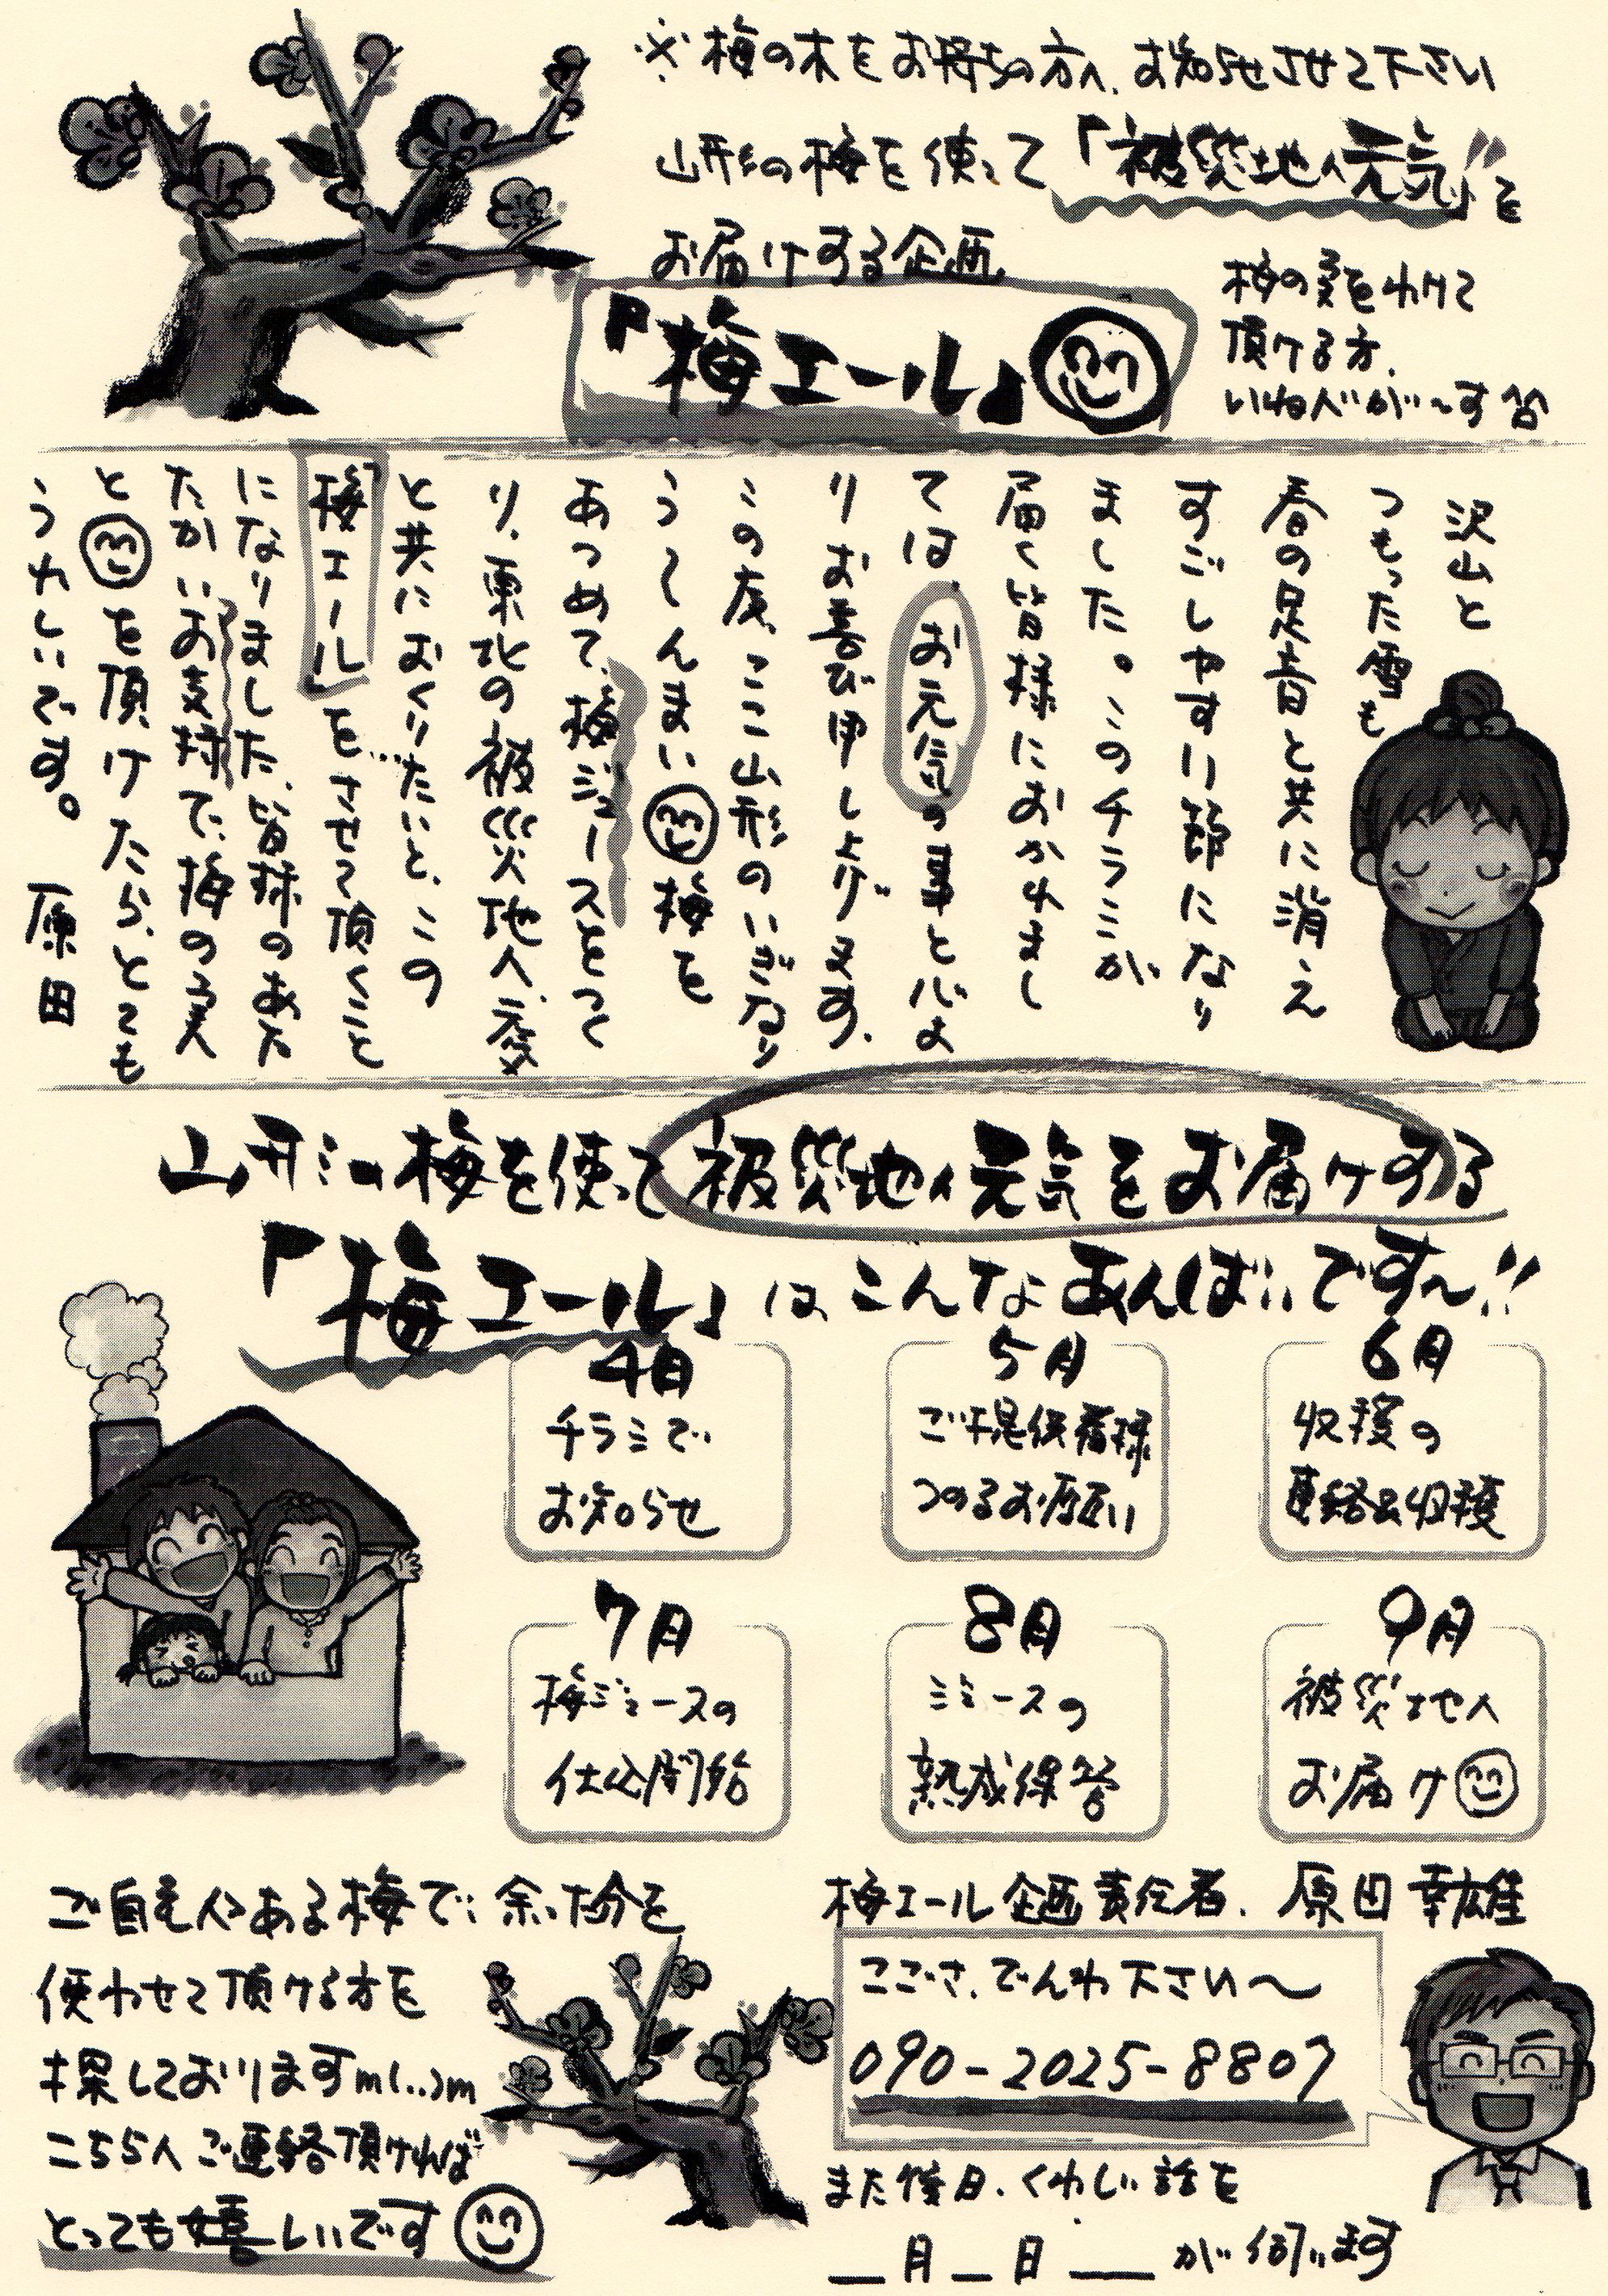 ※梅の木をお持ちの方へ、お知らせさせて下さい
山形の梅を使って「被災地へ元気!!」を
お届けする企画
『梅エール』
梅の実をわけて
頂ける方、
いねべが〜す
沢山と
つもった雪も
春の足音と共に消え
すごしやすい節になり
ました。このチラシが
届く皆様におかれまし
ては、お元気の事と心よ
りお喜び申し上げます。
この度、ここ山形のいぎなり
う〜んまい梅を
あつめて、梅ジュースをつく
り、東北の被災地へ、元気
と共におくりたいと、この
『梅エール』をさせて頂くこと
になりました。皆様のあた
たかいお支援で、梅の実
とを頂けたら、とても
うれしいです。 原田
山形の梅を使って被災地へ元気をお届けする
『梅エール』はこんなあんばいです〜!!
4月
チラシで
お知らせ
5月
ご提供者様
つのるお願い
6月
収穫の
連絡&収穫
7月
梅ジュースの
仕込開始
8月
ジュースの
熟成保管
9月
被災地へ
お届け
ご自宅にある梅で、余った分を
使わせて頂ける方を
探しておりますm(..)m
こちらへご連絡頂ければ
とっても嬉しいです
梅エール企画責任者、原田幸雄
ここさ、でんわ下さい〜
090-2025-8807
また後日、くわしい話を
__月__日____が伺います